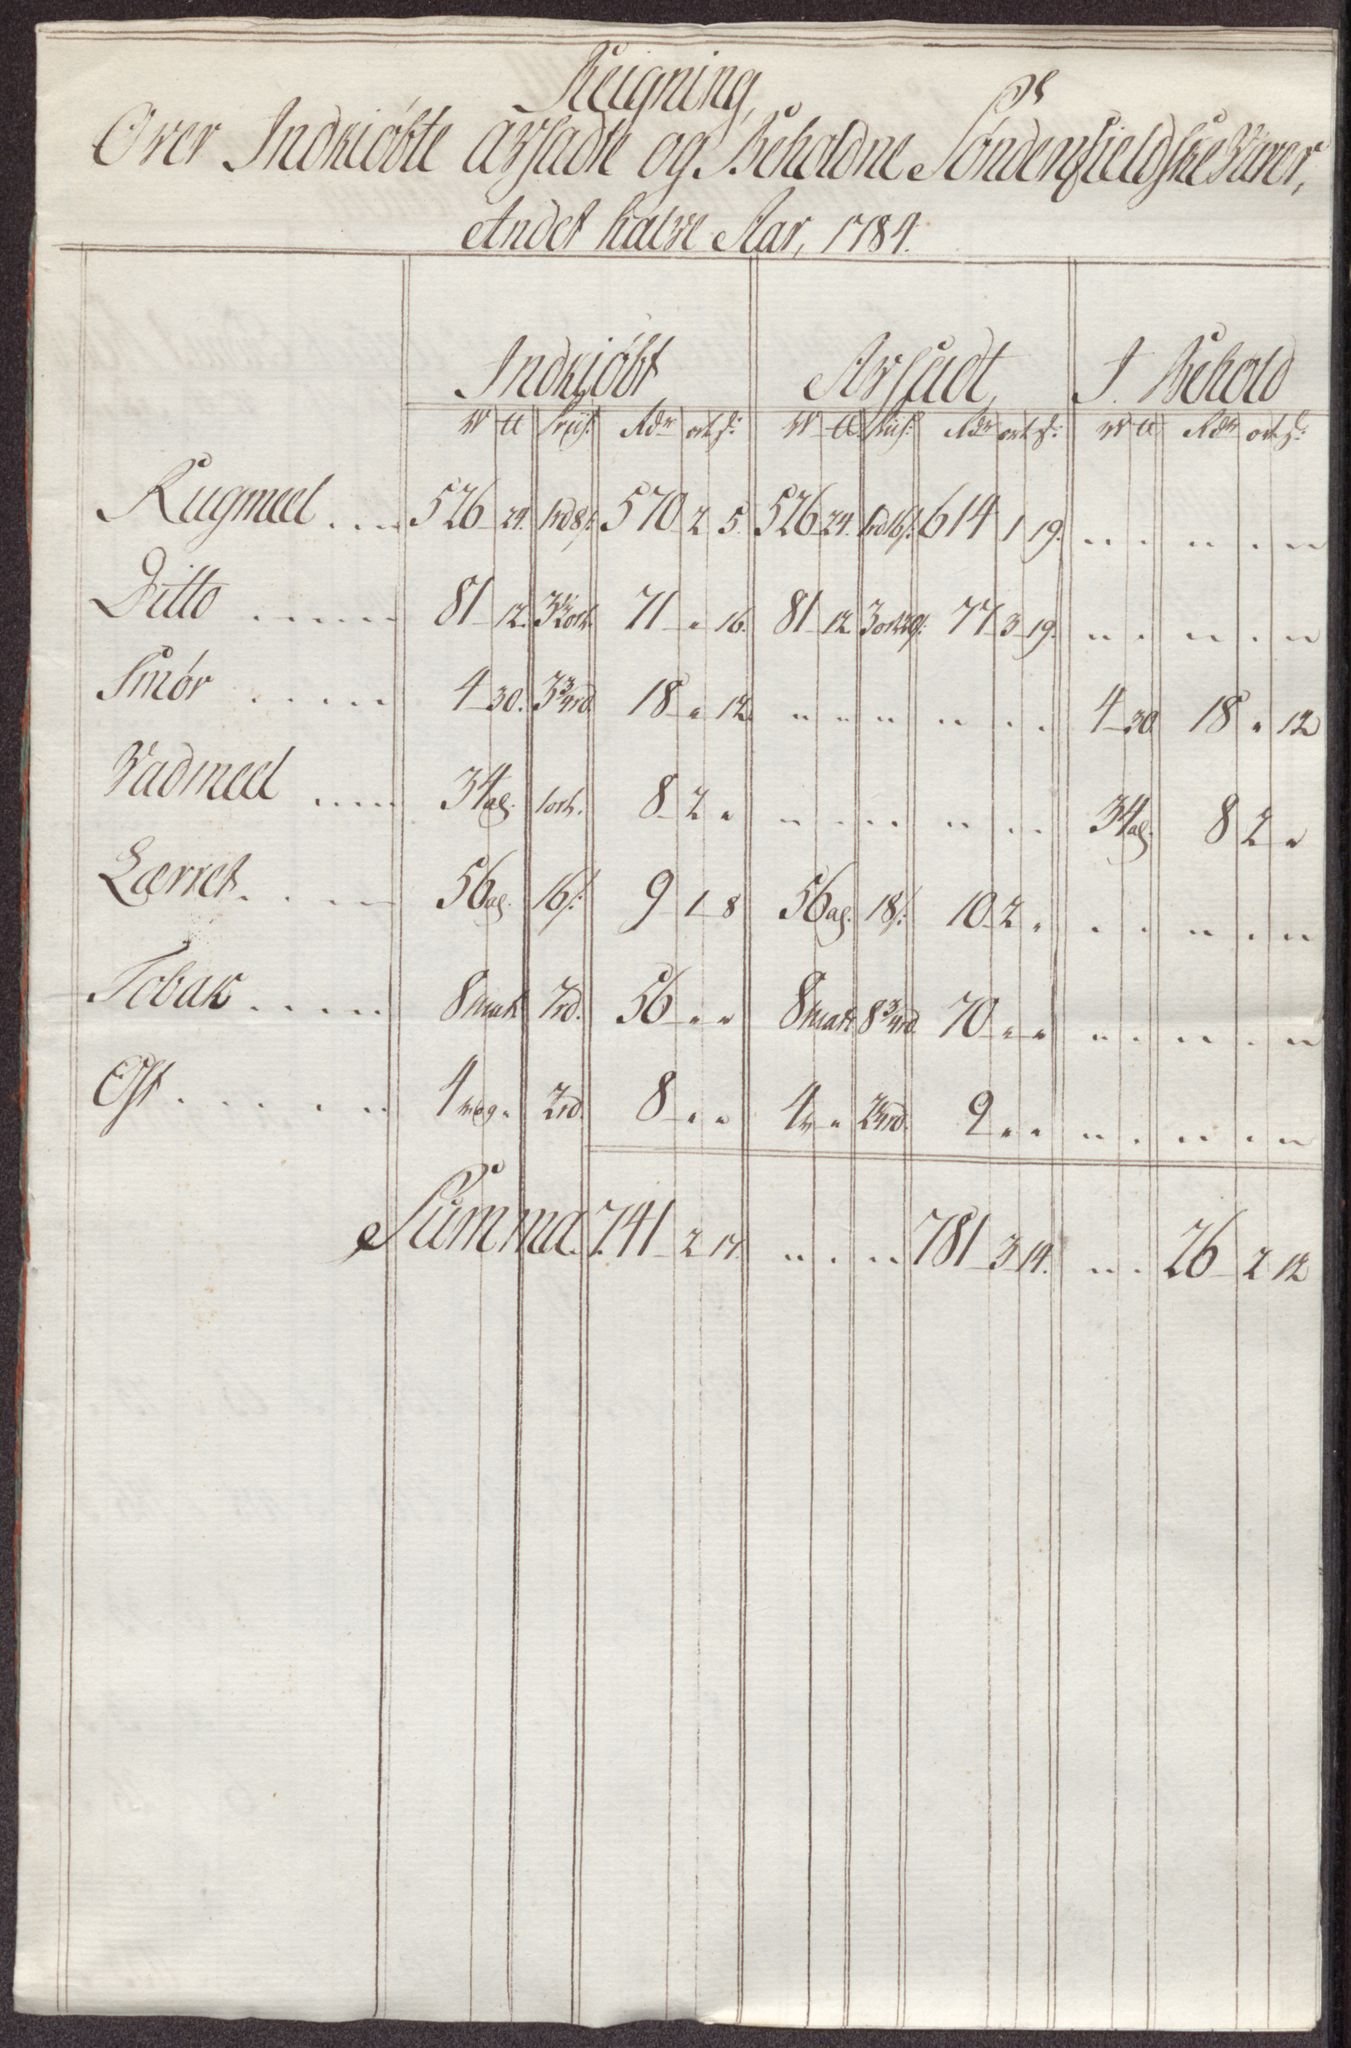 Reigning,
Over Indkiøbte Avsadte og Beholdne Søndenfieldske Varer,
Andet halve Aar, 1784.
Indkiøbt Avsadt, I Behold
W ℔ Priis: Rdr ort s: W ℔ Priis: Rdr ort s: W ℔ Rdr ort s:
Rugmeel 526 24. 1rd 8s. 570 2 5. 526 24. 1rd 16s. 614 1 19.
Ditto 81 12. 3½ ort. 71 " 16. 81 12 3 ort 20s. 77 3 19.
Smør 4 30. 3¾ rd. 18 " 12. 4 30 18 " 12
Vadmeel 34 al. 1 ort. 8 2 " 34 al. 8 2 "
Lærret 56 al. 16s: 9 1 8 56 al. 18s: 10 2 "
Tobak 8 7rd. 56 " " 8 8¾ rd. 70 " "
Ost 4 wog " 2rd. 8 " " 4 w " 2¼ rd. 9 " "
Summa. 741 2 17. 781 3 14. 26 2 12